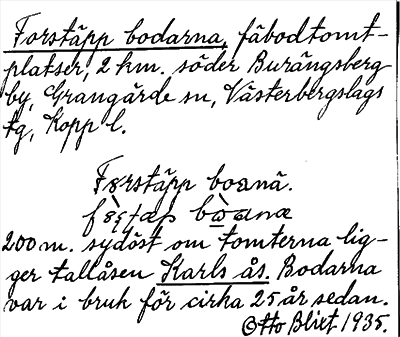 Forstäpp bodarna, fäbodtomt-
platser, 2 km. söder Burängsberg
by, Grangärde sn, Västerbergslags
tg, Kopp l.
Forstäpp boanä.
200 m. sydöst om tomterna lig-
ger tallåsen Karls ås. Bodarna
var i bruk för cirka 25 år sedan.
Otto Blixt 1935.